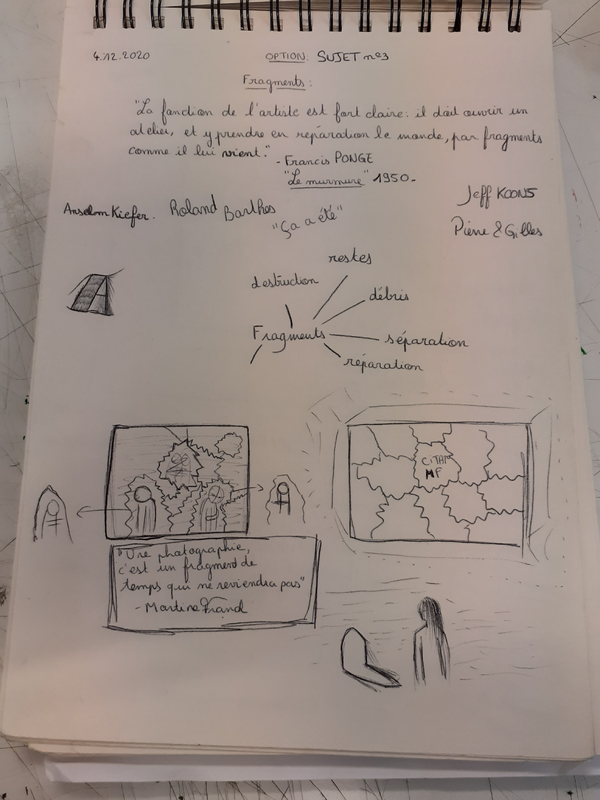 4.12.2020
OPTION: SUJET n°3
Fragments :
"La fonction de l'artiste est fort claire : il doit ouvrir un
atelier, et y prendre en réparation le monde, par fragments
comme il lui vient."
- Francis PONGE
"Le murmure" 1950.
Anselm Kiefer.
Roland Barthes
"Ça a été"
Jeff KOONS
Pierre & Gilles
restes
destruction
débris
Fragments
séparation
réparation
A
MF
"Une photographie,
c'est un fragment de
temps qui ne reviendra pas"
- Martine Franck